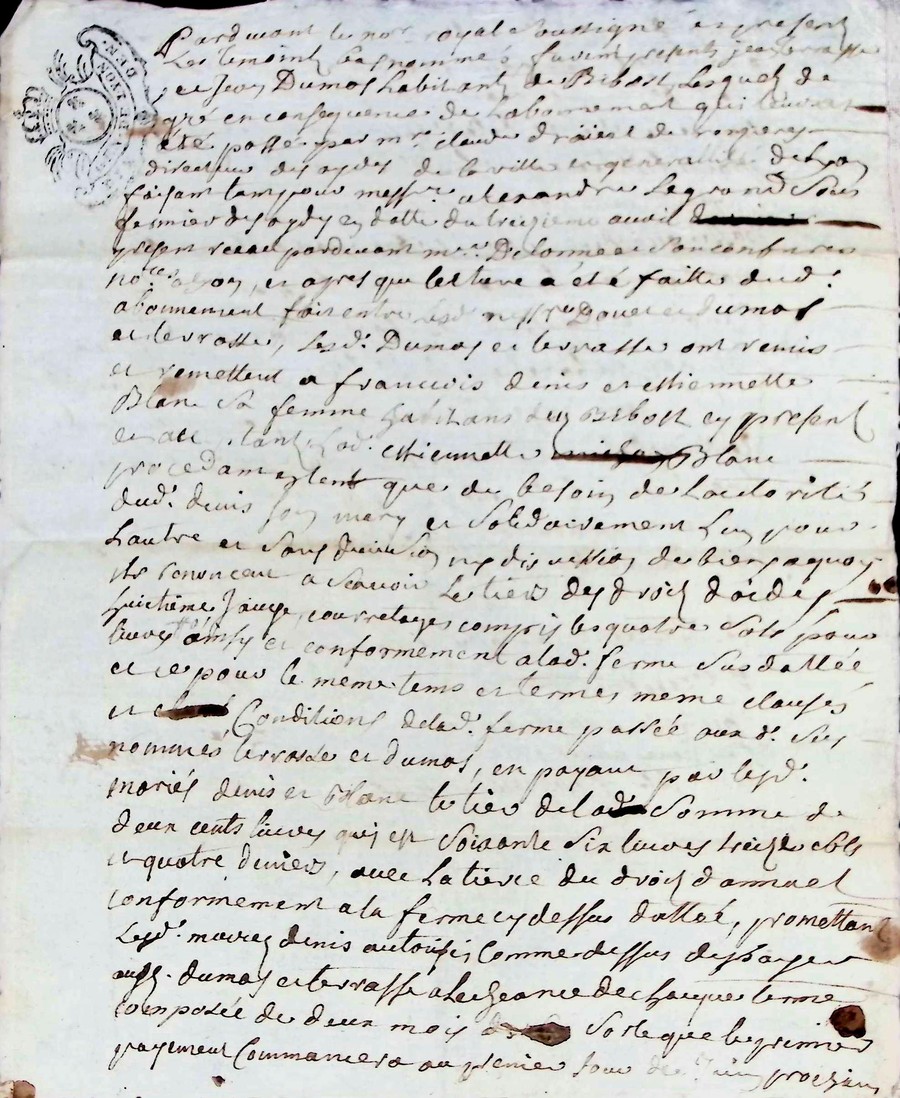 Pardevant le no.re royal soussigné et present
Les temoins bas nommés, furent presents jean terrasse
et Jean Dumas habitants de Bibost, Lesquels de
gré en consequence de Labonnement qui
été passé par m.re claude de
directeur des aydes de la ville et generallité de Lyon
faisant tant pour mess.re alexandre Legrand Sous
fermier des aydes en datte du treizieme avril
present receu pardevant m.re Delorme et Son confrere
no.res a Lyon, et apres que lecture a été faitte dud.
abonnement fait entre lesd. mess.rs et Dumas
et terrasse, Lesd. Dumas et terrasse ont remis
et remettent a francois denis et ettiennette
Blanc Sa femme habitans dud Bibost cy present
et acceptant, Lad. ettiennette Blanc
procedant en tant que de besoin de Lautorité
dud. denis son mary et Solidairement Lun pour
Lautre et Sans division ny discussion de biens a quoy
ils renoncent a Scavoir Le tiers des droits d'aides
huictieme Jauge, courretages compris les quatre Sols pour
livres ainsy et conformement a lad. ferme Susdattée
et ce pour le meme tems et termes meme clauses
et Conditions de lad. ferme passée aux d. Sus
nommés terrasse et dumas, en payant par lesd.
mariés denis et Blanc le tier de lad. Somme de
deux cents livres qui est Soixante Six livres treize Sols
et quatre deniers, avec La tierce du droit d'annuel
conformement a la ferme cy dessus dattée, promettant
Lesd. mariez denis autorisés Comme dessus de payer
auxd. dumas et terrasse a Lecheance de chacque terme
composée de deux mois Sorte que le premier
payement Commancera au premier Jour de Juin prochain